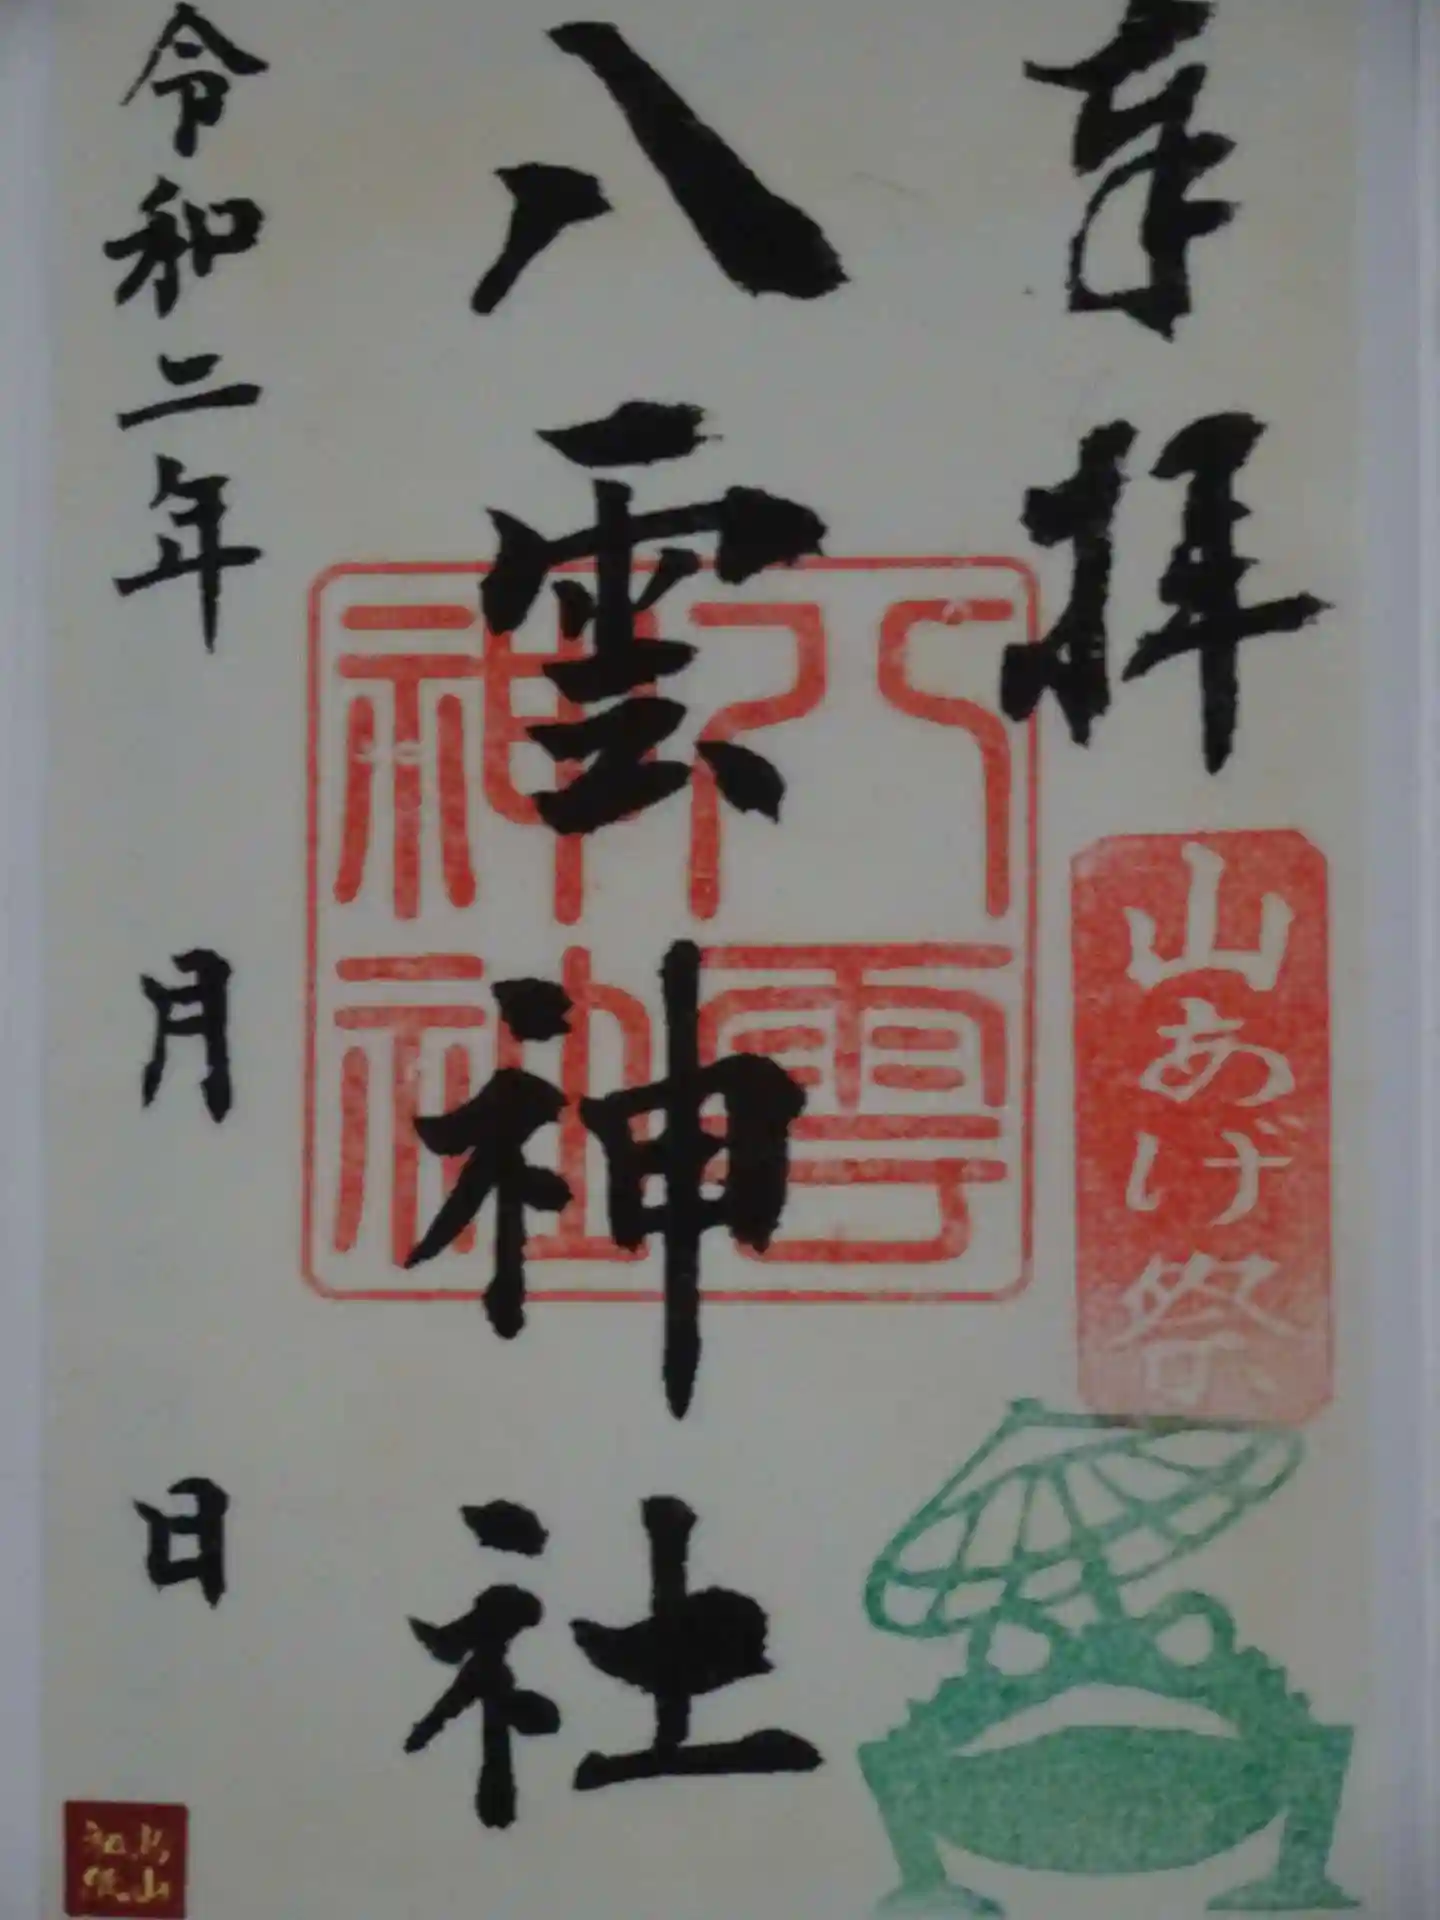 奉拝
山あげ祭
八雲神社
八雲神社
令和二年 月 日
烏山和紙